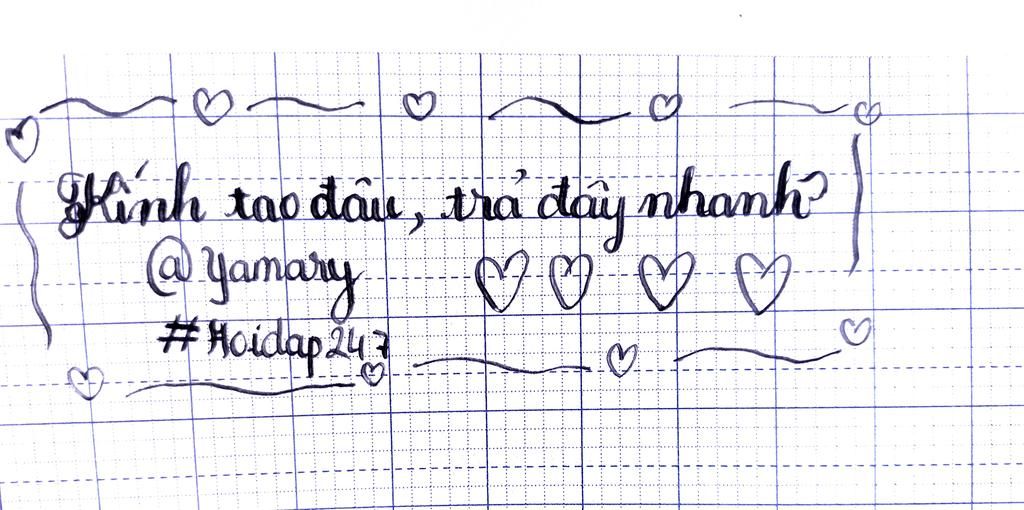 Kính tao đâu, trả đây nhanh?
@yamary
#Hoidap247